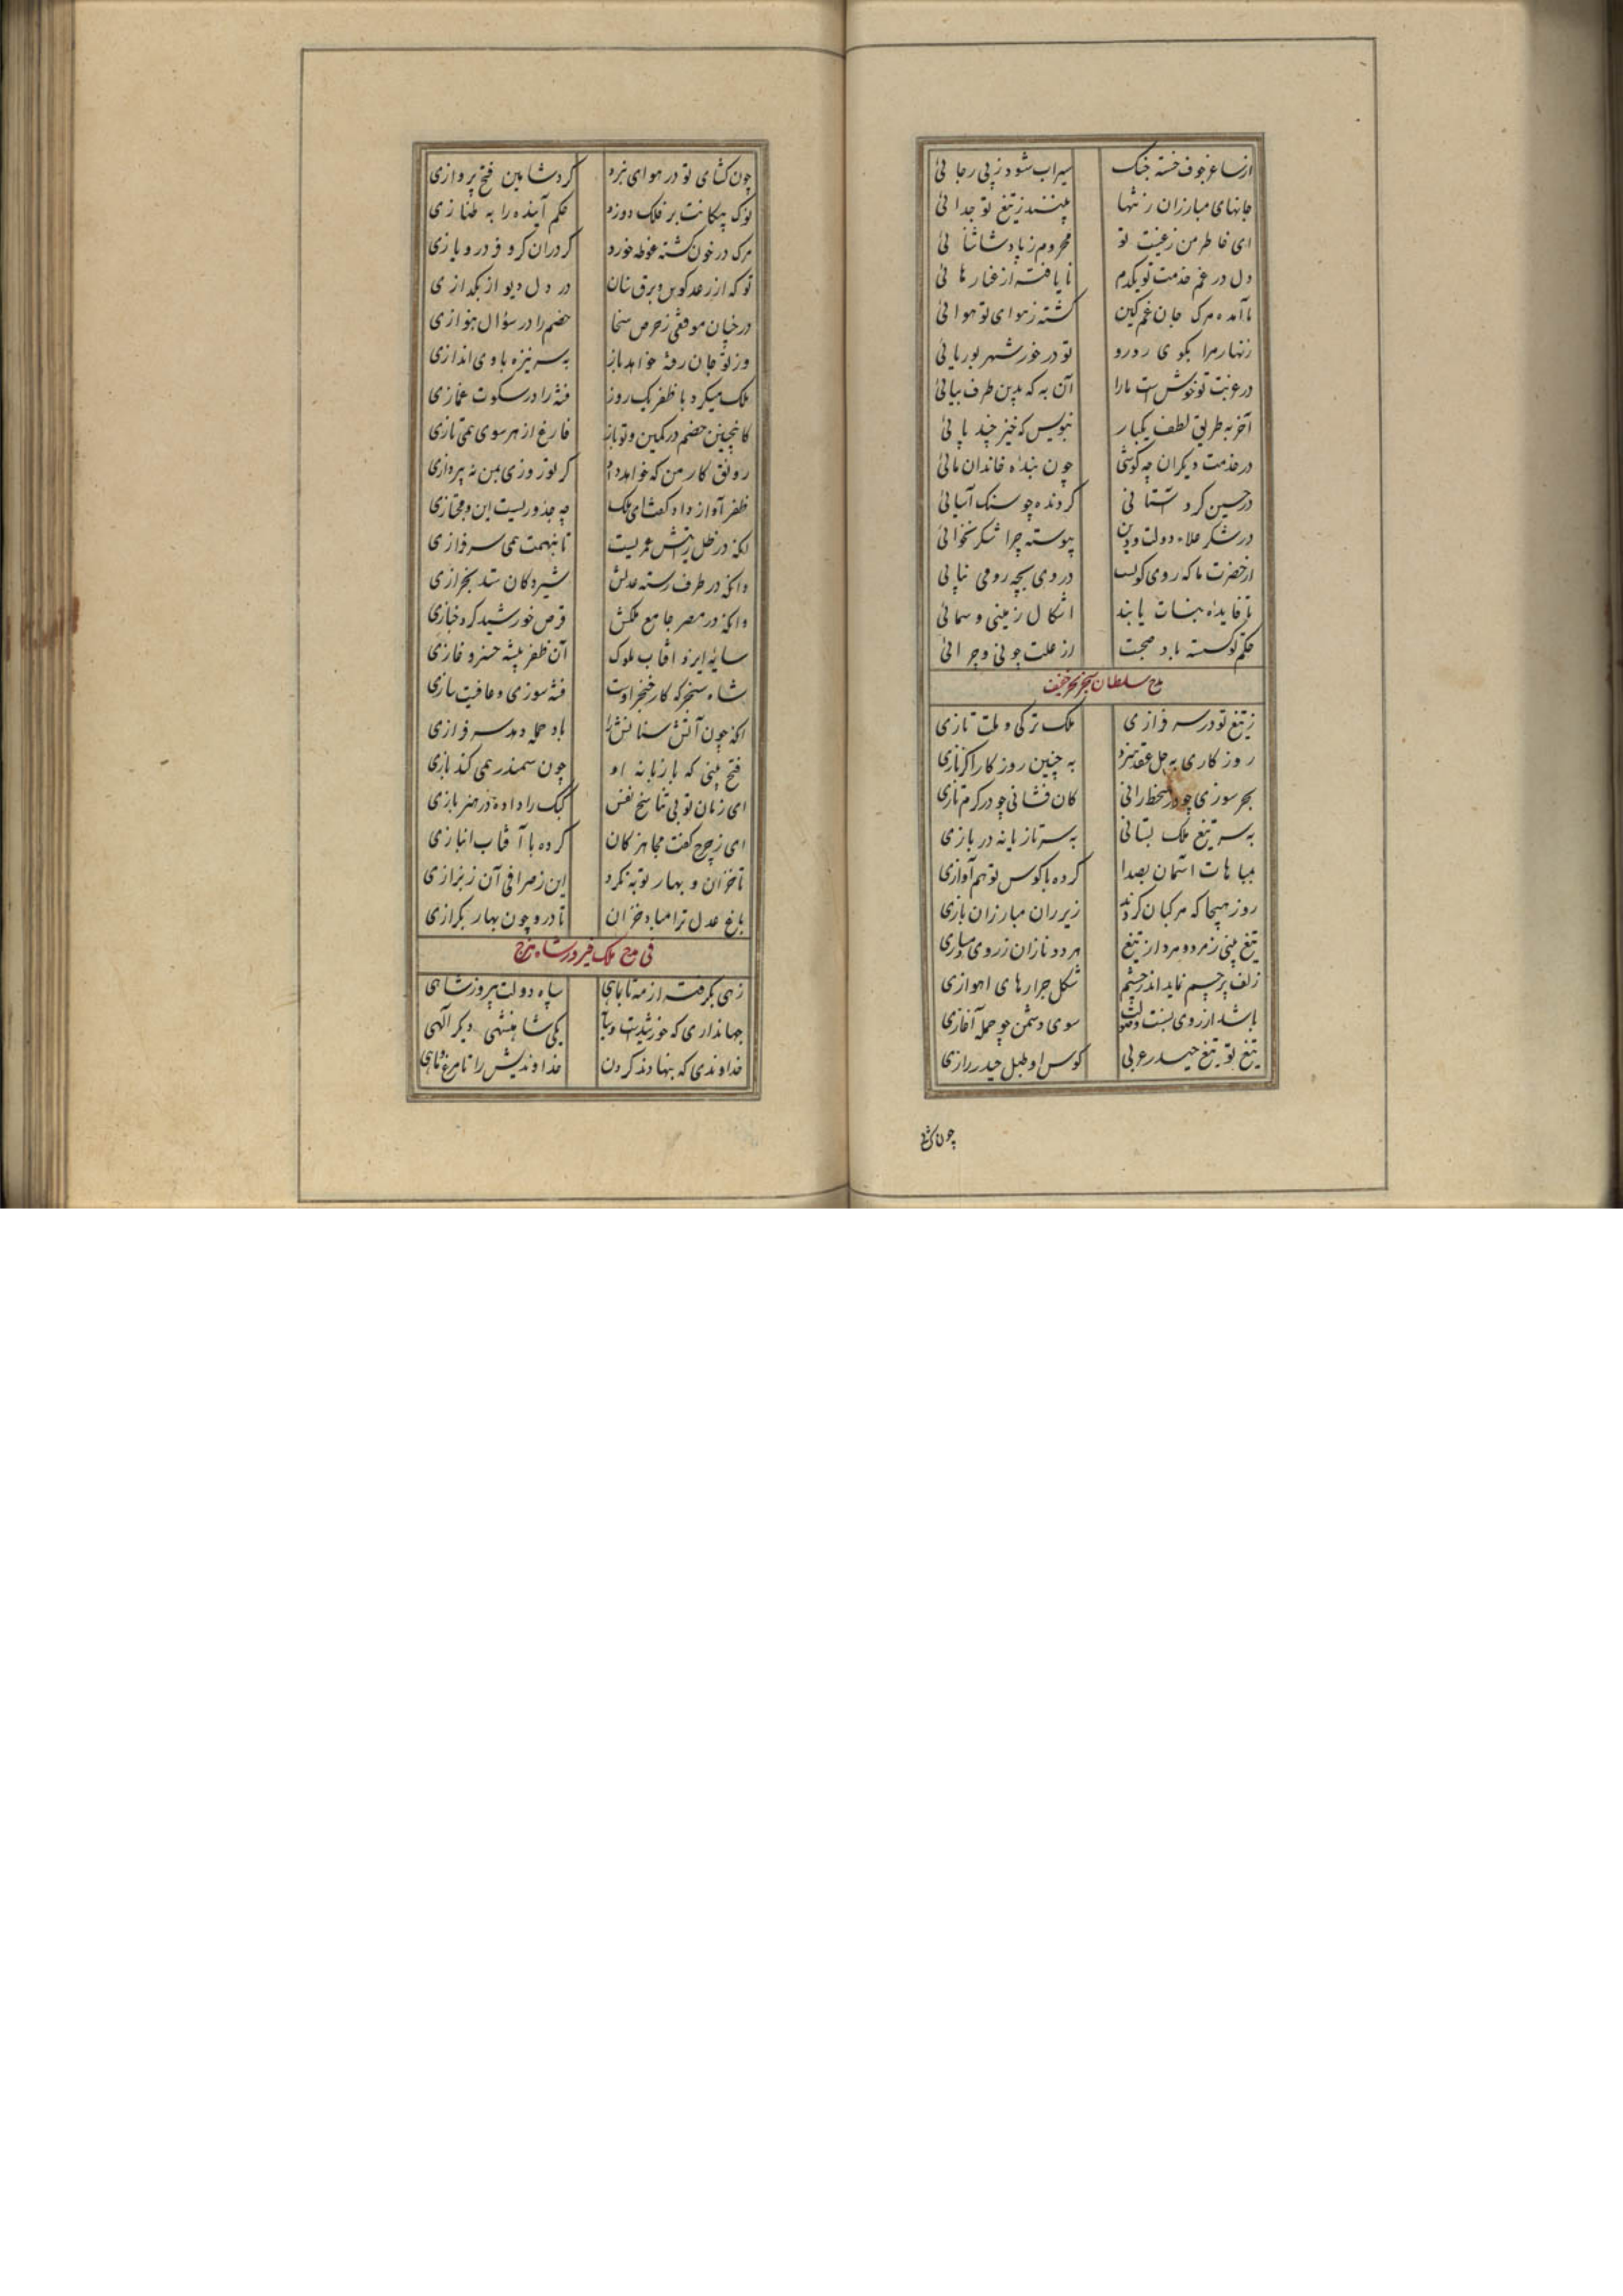 از ساغر خوف خسته جنگ سیراب شود ز پی رجائی
جانهای مبارزان ز تنها بینند ز تیغ تو جدائی
ای خاطر من ز غیبت تو محروم ز پادشاثنائی
دل در غم خدمت تو یکدم نایافته از غنا رهائی
نا آمده مرگ جان غمگین گشته ز هوای تو هوائی
زنهار مرا بگوی رو رو تو در خور شهر بوریائی
در غیبت تو خوش ست ما را آن به که بدین طرف بیائی
آخر به طریق لطف یکبار بنویس که خیز چند پائی
در خدمت دیگران چه کوشی چون بنده خاندان مائی
گردنده چو سنگ آسیائی
در شکر علاء دولت و دین پیوسته چرا شکر نخوائی
از حضرت ما که روی کونست در وی بچه روی می نیائی
تا فایده نبات یابند اشکال زمینی و سمائی
حکم تو گسسته باد صحبت از علت چونی و چرائی
مدح سلطان سنجر بحر خفیف
ز تیغ تو در سرفرازی ملک ترکی و ملت تازی
روزگاری به حل و عقد و سزد به چنین روزگار اگر نازی
بحر سوزی چو در سخط رانی کان فشانی چو در کرم تازی
به سر تیغ ملک بستانی به سر تازیانه در بازی
مباهات آسمان بصدا کرده با کوس تو هم آوازی
روز هیجا که مرکبان کردند زیر ران مبارزان بازی
تیغ بینی ز مرد و مرد از تیغ هر دو نازان ز روی دمسازی
زلف پرچم نماید اندر چشم شکل جرارهای اهوازی
باشد از روی نسبت و صولت سوی دشمن چو حمله آغازی
تیغ تو تیغ حیدر عربی کوس او طبل حیدر رازی
چون کشا
چون کشای تو در هوای نبرد کرد شاهین فتح پروازی
نوک پیکانت بر فلک دوزد حکم آینده را به طنازی
مرگ در خون کشته غوطه خورد گر در آن کر و فر درو یازی
تو که از رعد کوس و برق سنان در دل دیو از بگدازی
در چنان موقفی ز حرص سخا خصم را در سؤال بنوازی
ور ز تو جان رفته خواهد باز به سر نیزه با وی اندازی
ملک میکرد با ظفر یک روز فتنه را در سکوت غمازی
کاینچنین خصم در کمین و تو باز فارغ از هر سوی همی تازی
رونق کار من که خواهد داد گر تو روزی بمن نه پردازی
ظفر آواز داد گفت ای ملک چه حدیثیست این و مجازی
انکه در ظل رایتش عمریست تا بنهمت همی سرفرازی
وانکه در طرف رسته عدلش شیر دکان ستد بخرازی
وانکه در مصر جامع ملکش قرص خورشید کرد خبازی
سایه ایزد آفتاب ملوک آن ظفر پیشه خسرو غازی
شاه سنجر که کار خنجر اوست فتنه سوزی و عافیت سازی
انکه چون آتش سنانش را باد حمله دهد سرفرازی
فتح بینی که با زبانه او چون سمندر همی کند بازی
ای زمان تو بی تناسخ نفس کبک را داده در هنر بازی
ای ز چرخ گفت مجاهز کان کرده با آفتاب انبازی
تا خزان و بهار توبه نکرد این ز صرافی آن ز بزازی
باغ عدل ترا مباد خزان تا درو چون بهار بگرازی
فی مدح ملک فیروزشاه هزج
زهی بگرفته از مه تا به ماهی سپاه دولت پیروزشاهی
جهانداری که خورشیدست و سایه یکی شاهنشهی دیگر آلهی
خداوندی که بنهادند گردن خداوندیش را تا مرغ و ماهی